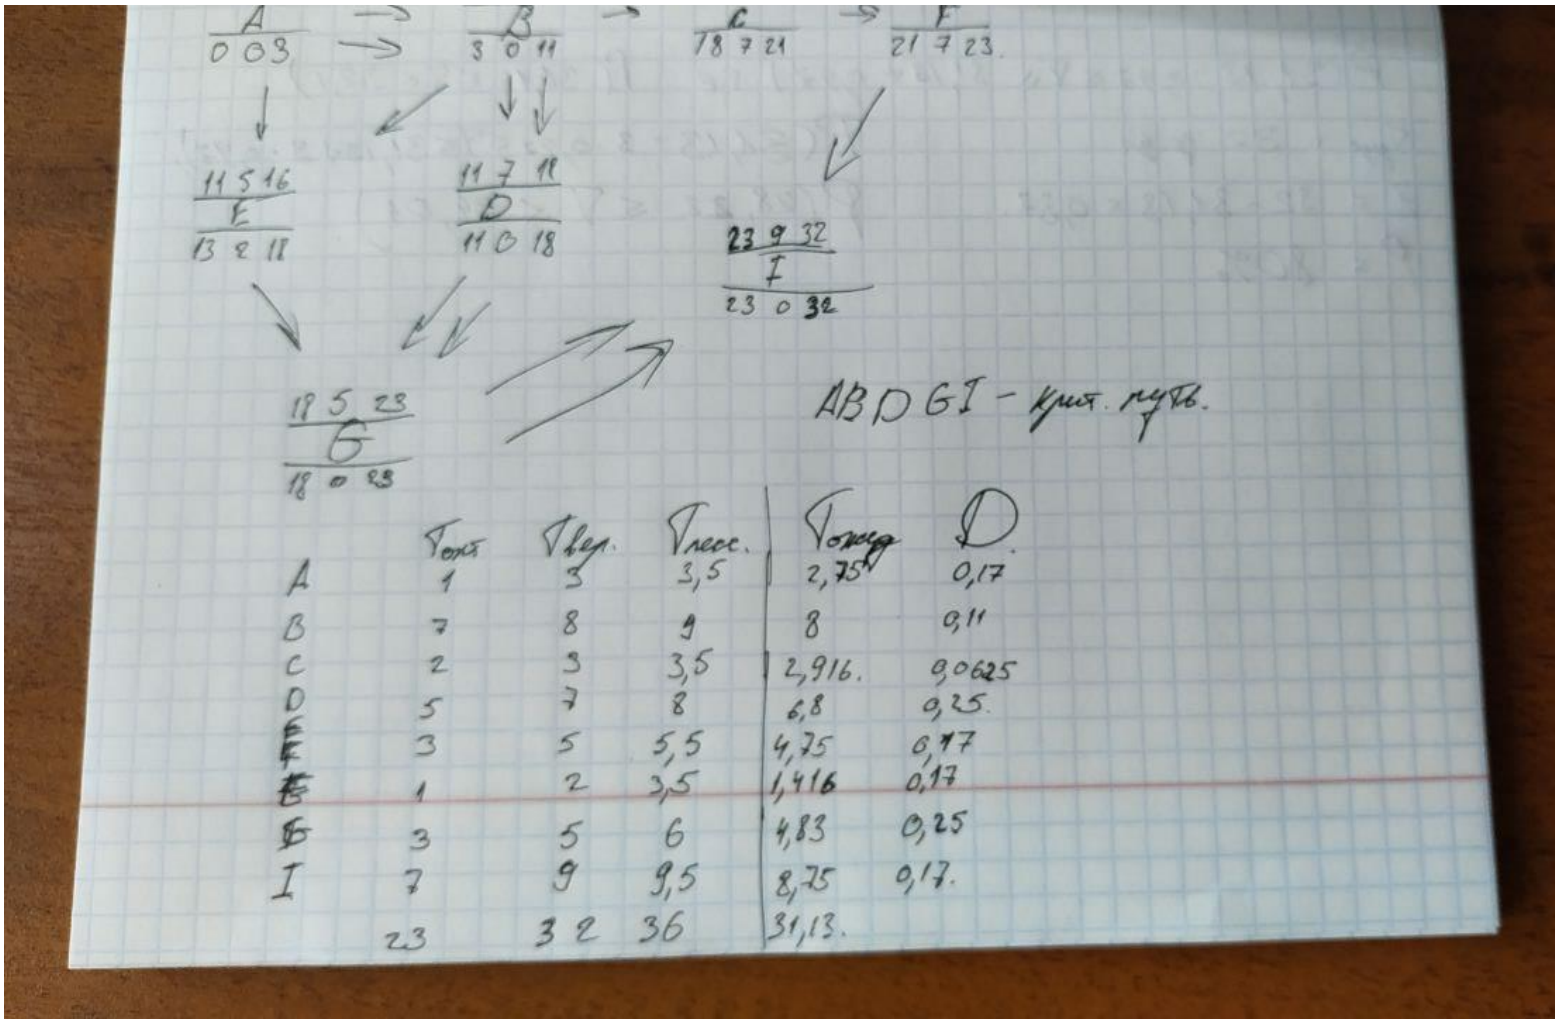 A B C F
0 0 3 3 0 11 18 7 21 21 7 23
11 5 16 11 7 18
E D
13 2 18 11 0 18
23 9 32
I
23 0 32
18 5 23
G
18 0 23
ABDGI - крит. путь.
Топт Твер. Тпесс. Тожид D
A 1 3 3,5 2,75 0,17
B 7 8 9 8 0,11
C 2 3 3,5 2,916. 0,0625
D 5 7 8 6,8 0,25.
3 5 5,5 4,75 0,17
1 2 3,5 1,416 0,17
G 3 5 6 4,83 0,25
I 7 9 9,5 8,75 0,17.
23 32 36 31,13.